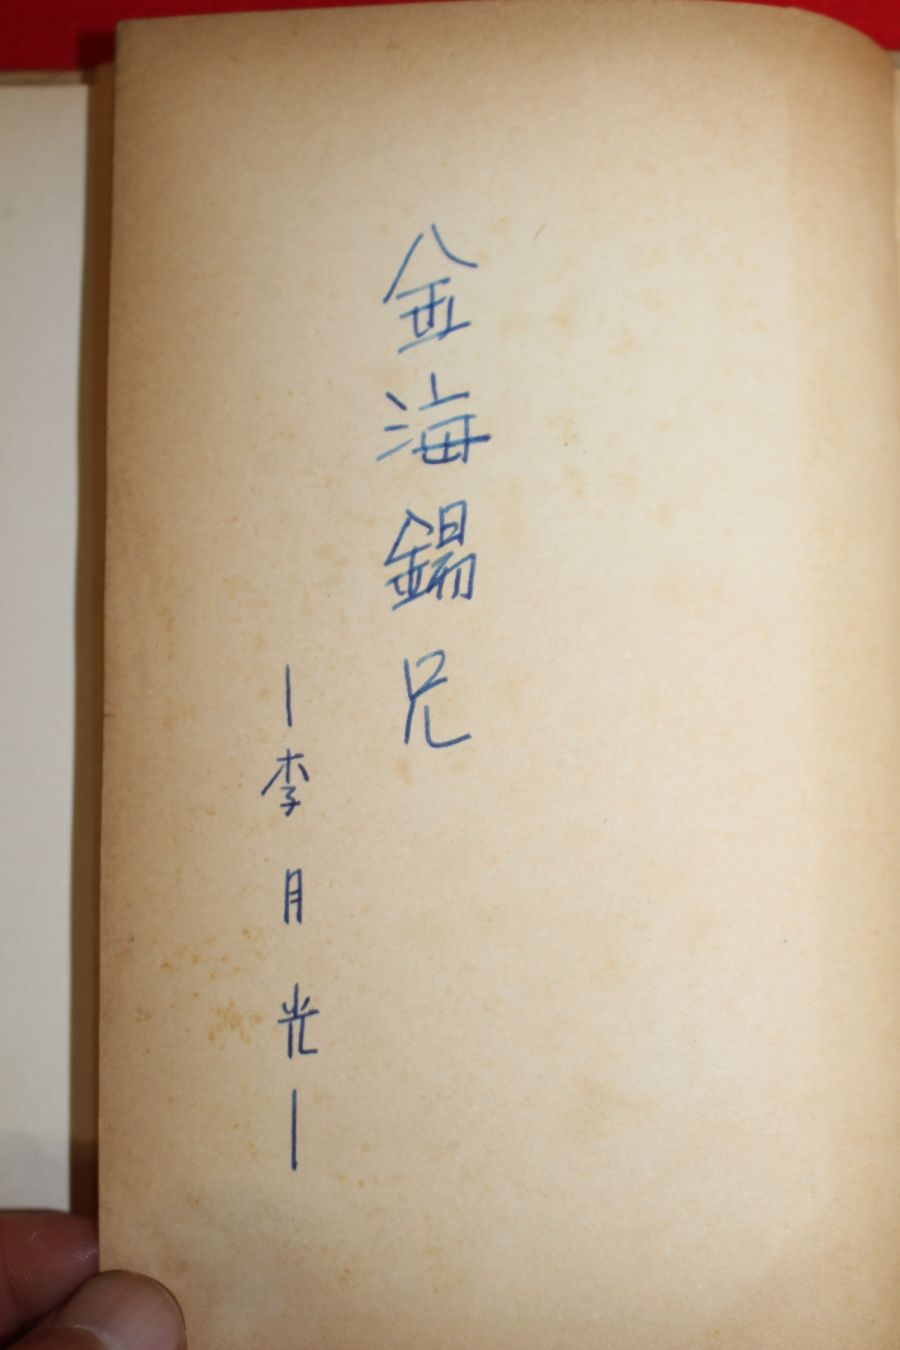 金海錫兄
―李月光―